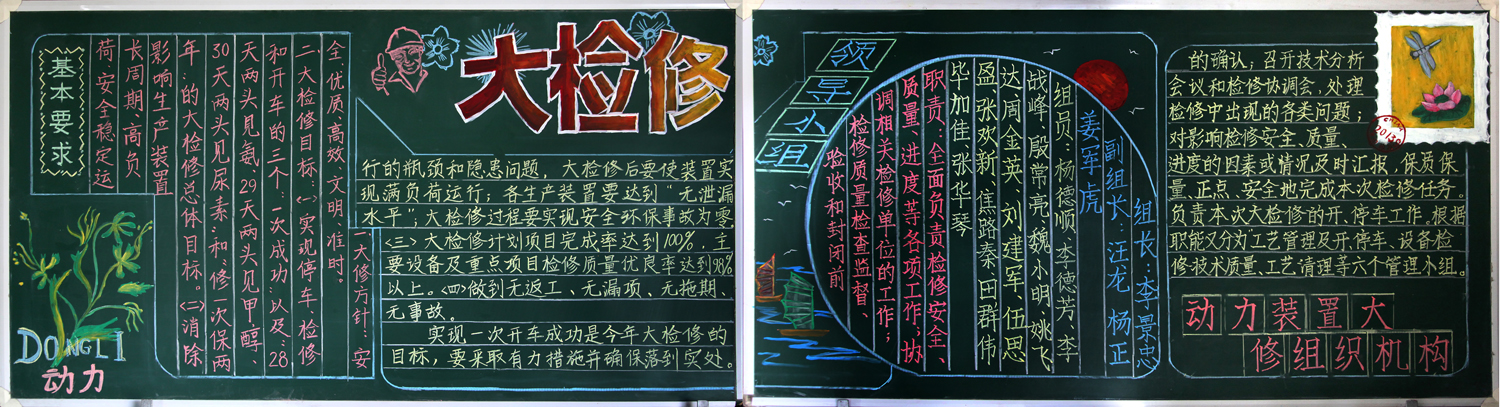 大检修
基本要求
一大修方针：安
全、优质、高效、文明、准时。
二大检修目标：㈠实现停车、检修
和开车的三个：一次成功：以及：28
天两头见氨、29天两头见甲醇、
30天两头见尿素：和：修一次保两
年：的大检修总体目标。㈡消除
影响生产装置
长周期、高负
荷、安全稳定运
行的瓶颈和隐患问题，大检修后要使装置实
现满负荷运行；各生产装置要达到“无泄漏
水平”；大检修过程要实现安全环保事故为零。
㈢大检修计划项目完成率达到100%，主
要设备及重点项目检修质量优良率达到98%
以上。㈣做到无返工、无漏项、无拖期、
无事故。
实现一次开车成功是今年大检修的
目标，要采取有力措施并确保落到实处。
DONGLI
动力
领导小组
组长：李景忠
副组长：汪龙 杨正
姜军虎
组员：杨德顺、李德芳、李
战峰、殷常亮、魏小明、姚飞
达、周金英、刘建军、伍思
盈、张欢新、焦路秦、田群伟
毕加佳、张华琴
职责：全面负责检修安全、
质量、进度等各项工作；协
调相关检修单位的工作；
检修质量检查监督、
验收和封闭前
的确认；召开技术分析
会议和检修协调会，处理
检修中出现的各类问题；
对影响检修安全、质量、
进度的因素或情况及时汇报，保质保
量、正点、安全地完成本次检修任务。
负责本次大检修的开、停车工作。根据
职能又分为“工艺管理及开、停车、设备检
修技术质量、工艺清理等六个管理小组。
动力装置大
修组织机构